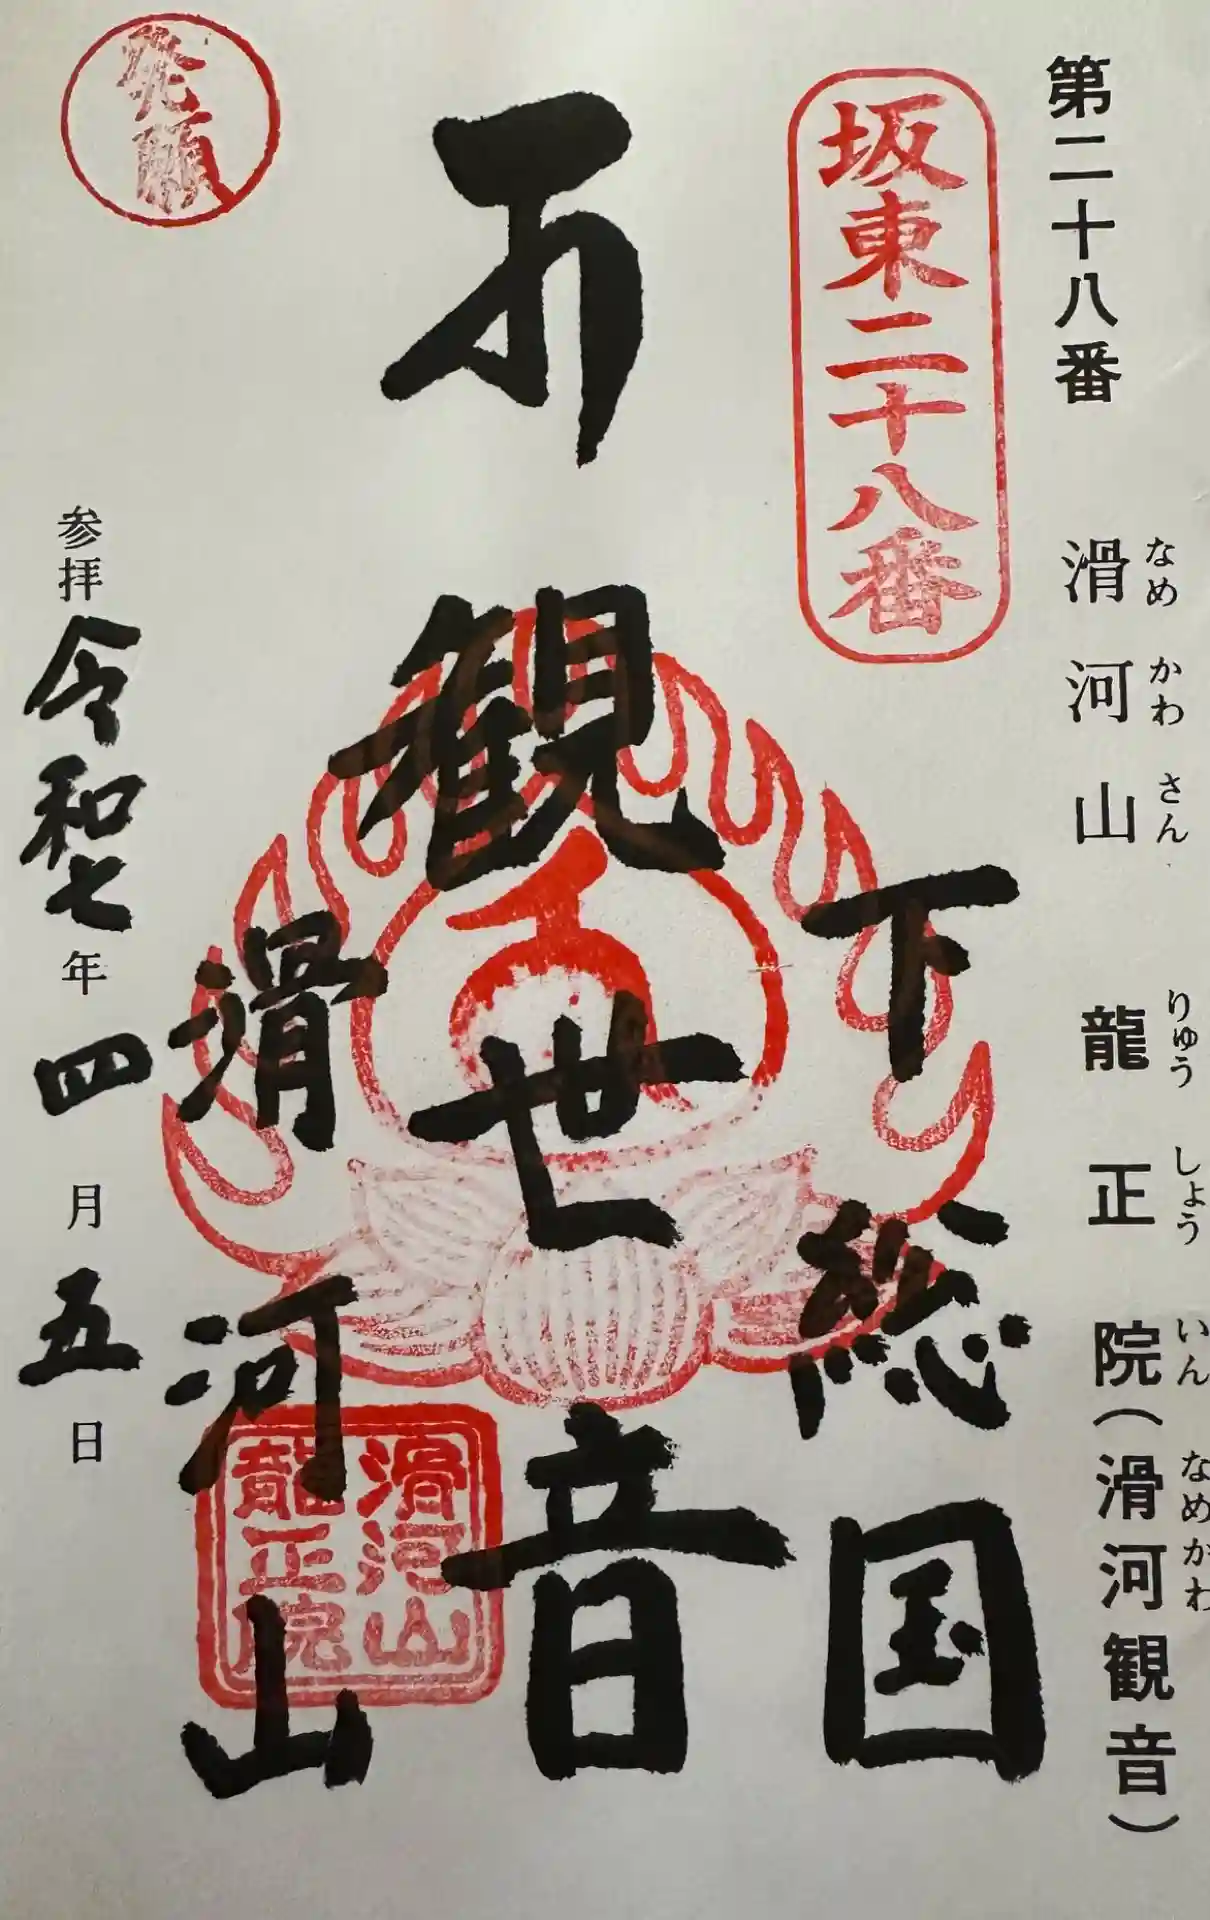 第二十八番 滑河山 龍正院(滑河観音)
なめかわさん りゅうしょういん なめかわ
坂東二十八番
下総国
観世音
滑河山
滑河山
龍正院
発願
参拝 令和七年四月五日